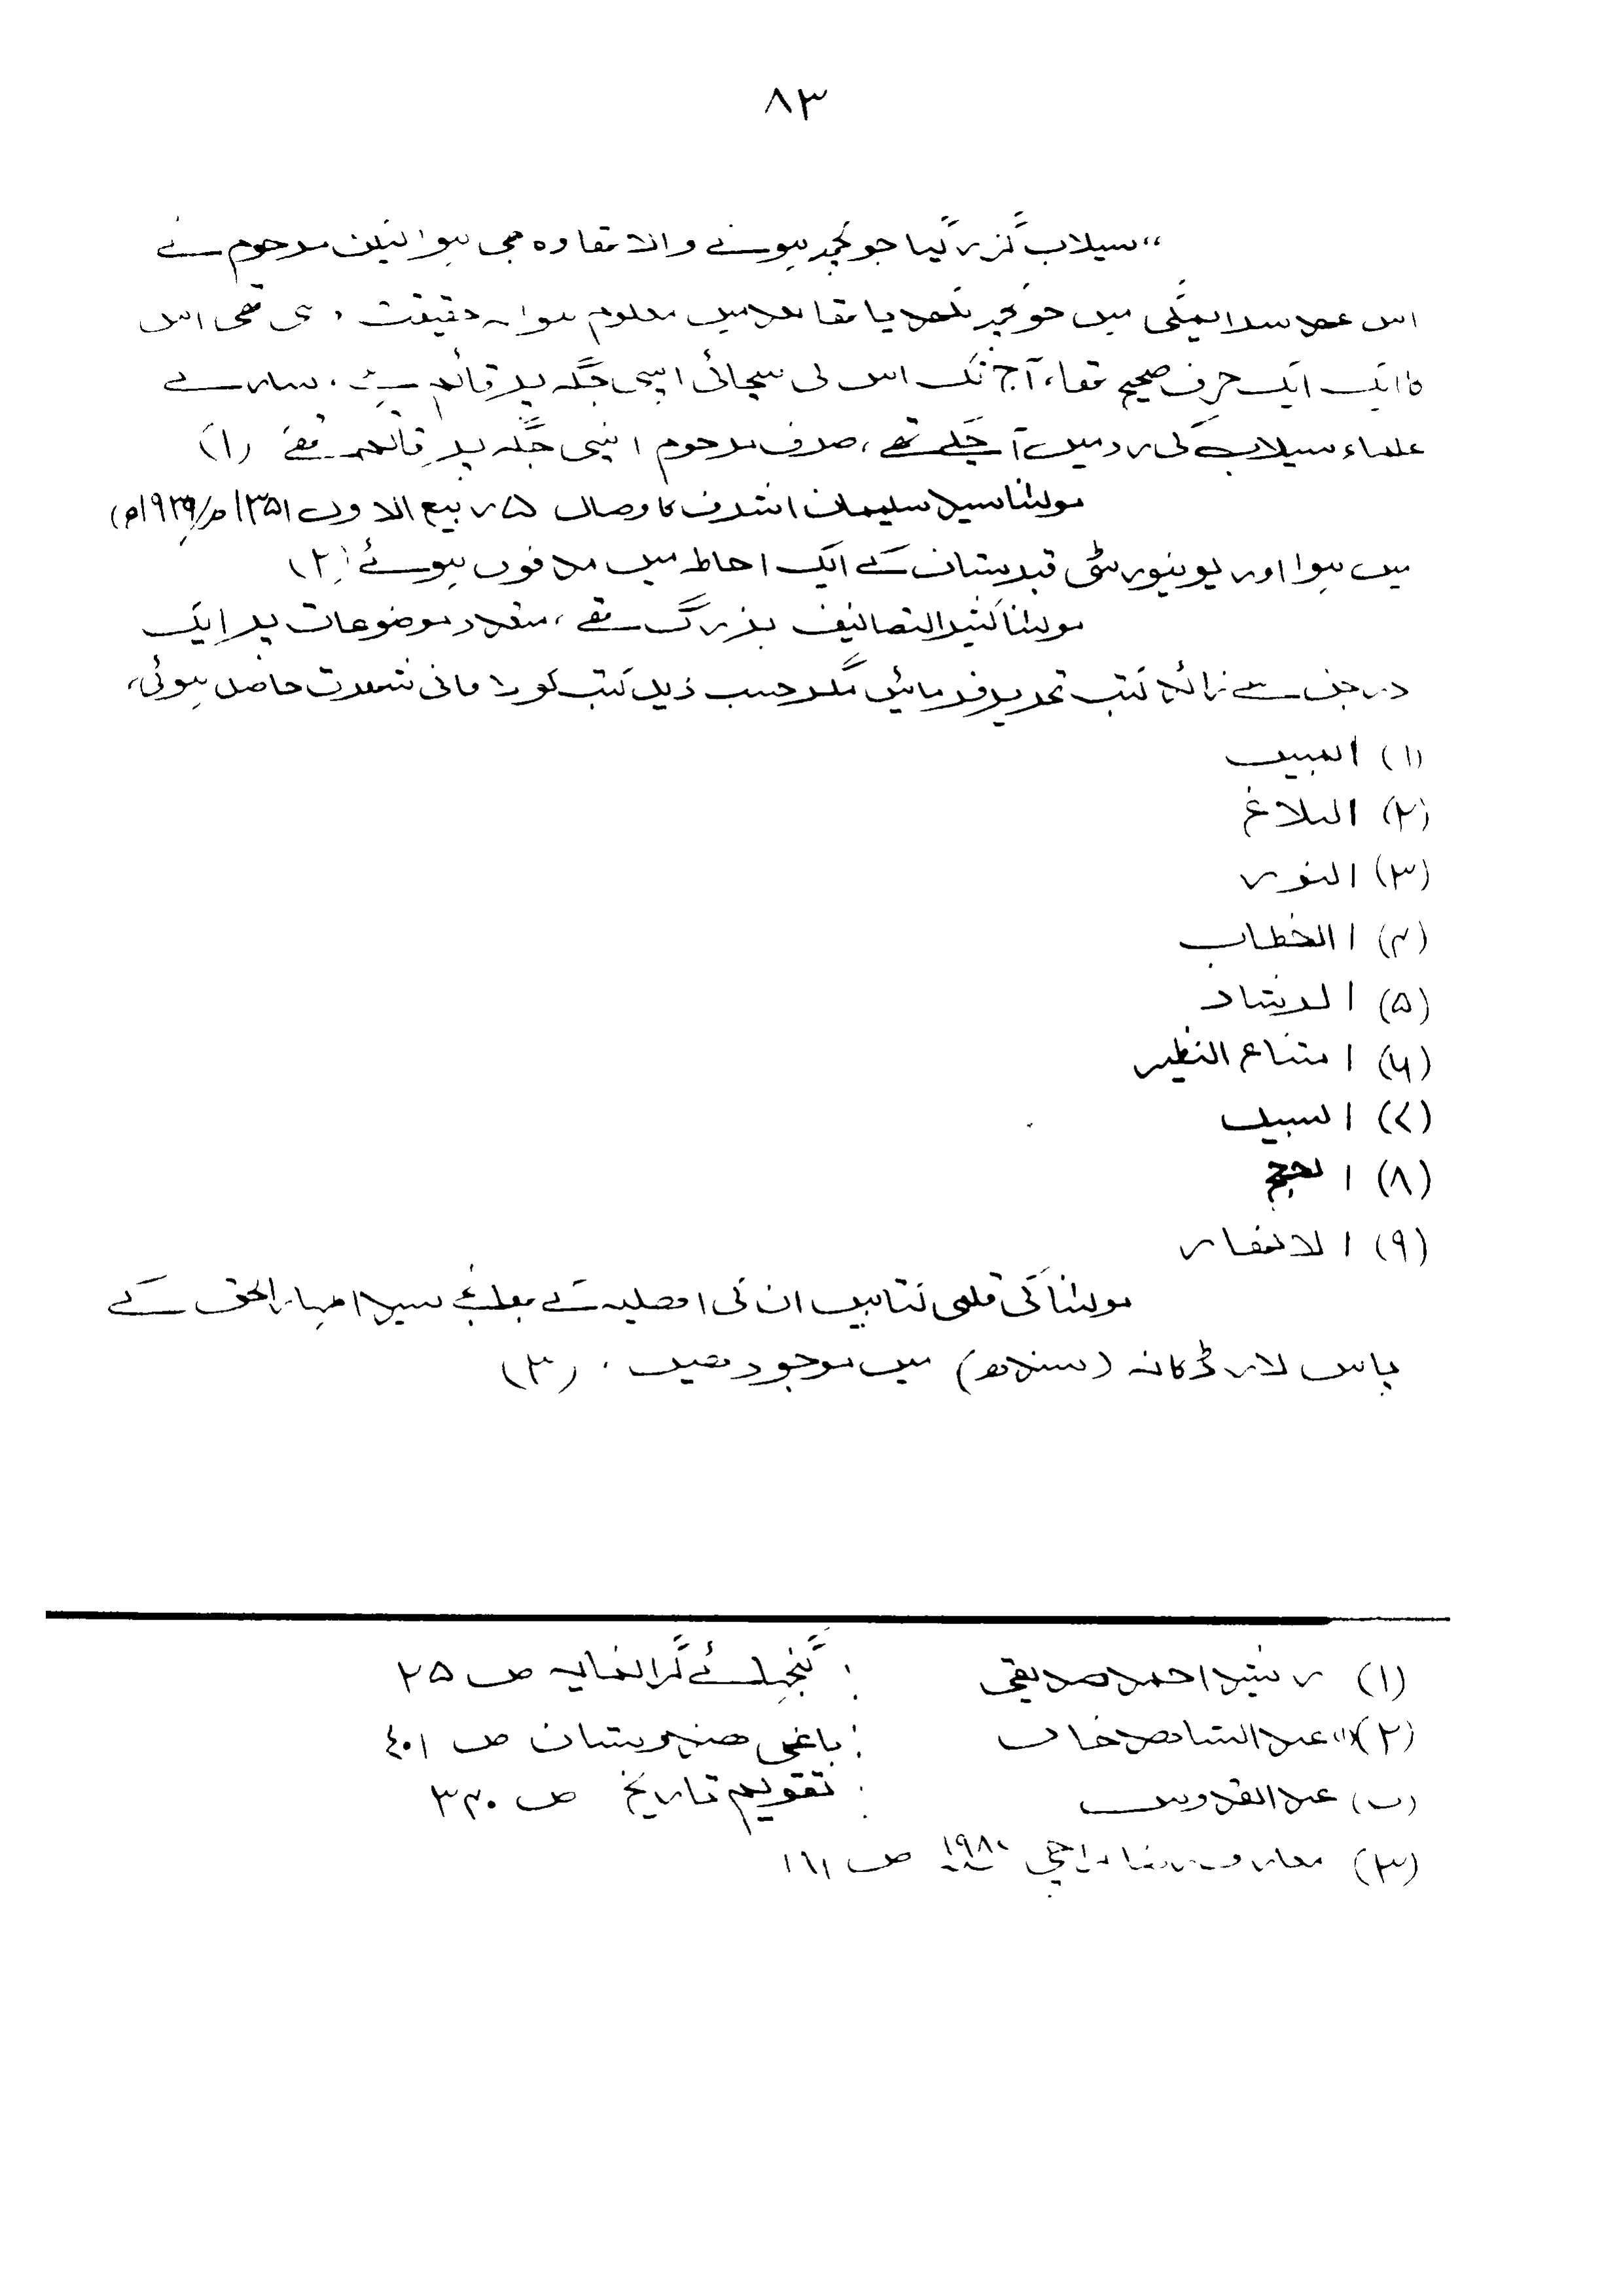 ۸۳
“سیلاب گزر گیا جو کچھ ہونے والا تھا وہ بھی ہوا لیکن مرحوم نے
اس عہد سراسیمگی میں جو کچھ لکھ دیا تھا بعد میں معلوم ہوا کہ حقیقت وہی تھی اس
کا ایک ایک حرف صحیح تھا، آج تک اس کی سچائی اپنی جگہ پر قائم ہے، سارے
علماء سیلاب کی رد میں آ چکے تھے، صرف مرحوم اپنی جگہ پر قائم تھے (۱)
مولٰنا سید سلیمان اشرف کا وصال ۵؍ ربیع الاول ۱۳۵۱ھ/۱۹۳۹ء)
میں ہوا اور یونیورسٹی قبرستان کے ایک احاطہ میں مدفون ہوئے (۲)
مولٰنا کثیر التصانیف بزرگ تھے، متعدد موضوعات پر ایک
درجن سے زائد کتب تحریر فرمائیں مگر حسب ذیل کتب کو لافانی شہرت حاصل ہوئی،
(۱) المبین
(۲) البلاغ
(۳) النور
(۴) الخطاب
(۵) الرشاد
(۶) امتناع النظیر
(۷) السبیل
(۸) الحج
(۹) الانھار
مولٰنا کی قلمی کتابیں ان کی اھلیہ کے بھانجے سید اظہار الحق کے
پاس لاڑکانہ (سندھ) میں موجود ھیں۔ (۳)
(۱) رشید احمد صدیقی : گنجہائے گرانمایہ ص ۲۵
(۲)(۱) عبد الشاھد خاں : باغی ھندوستان ص ۴۰۱
(ب) عبد القدوس : تقویم تاریخ ص ۳۴۰
(۳) معارف رضا کراچی ۱۹۸۰ ص ۱۶۱